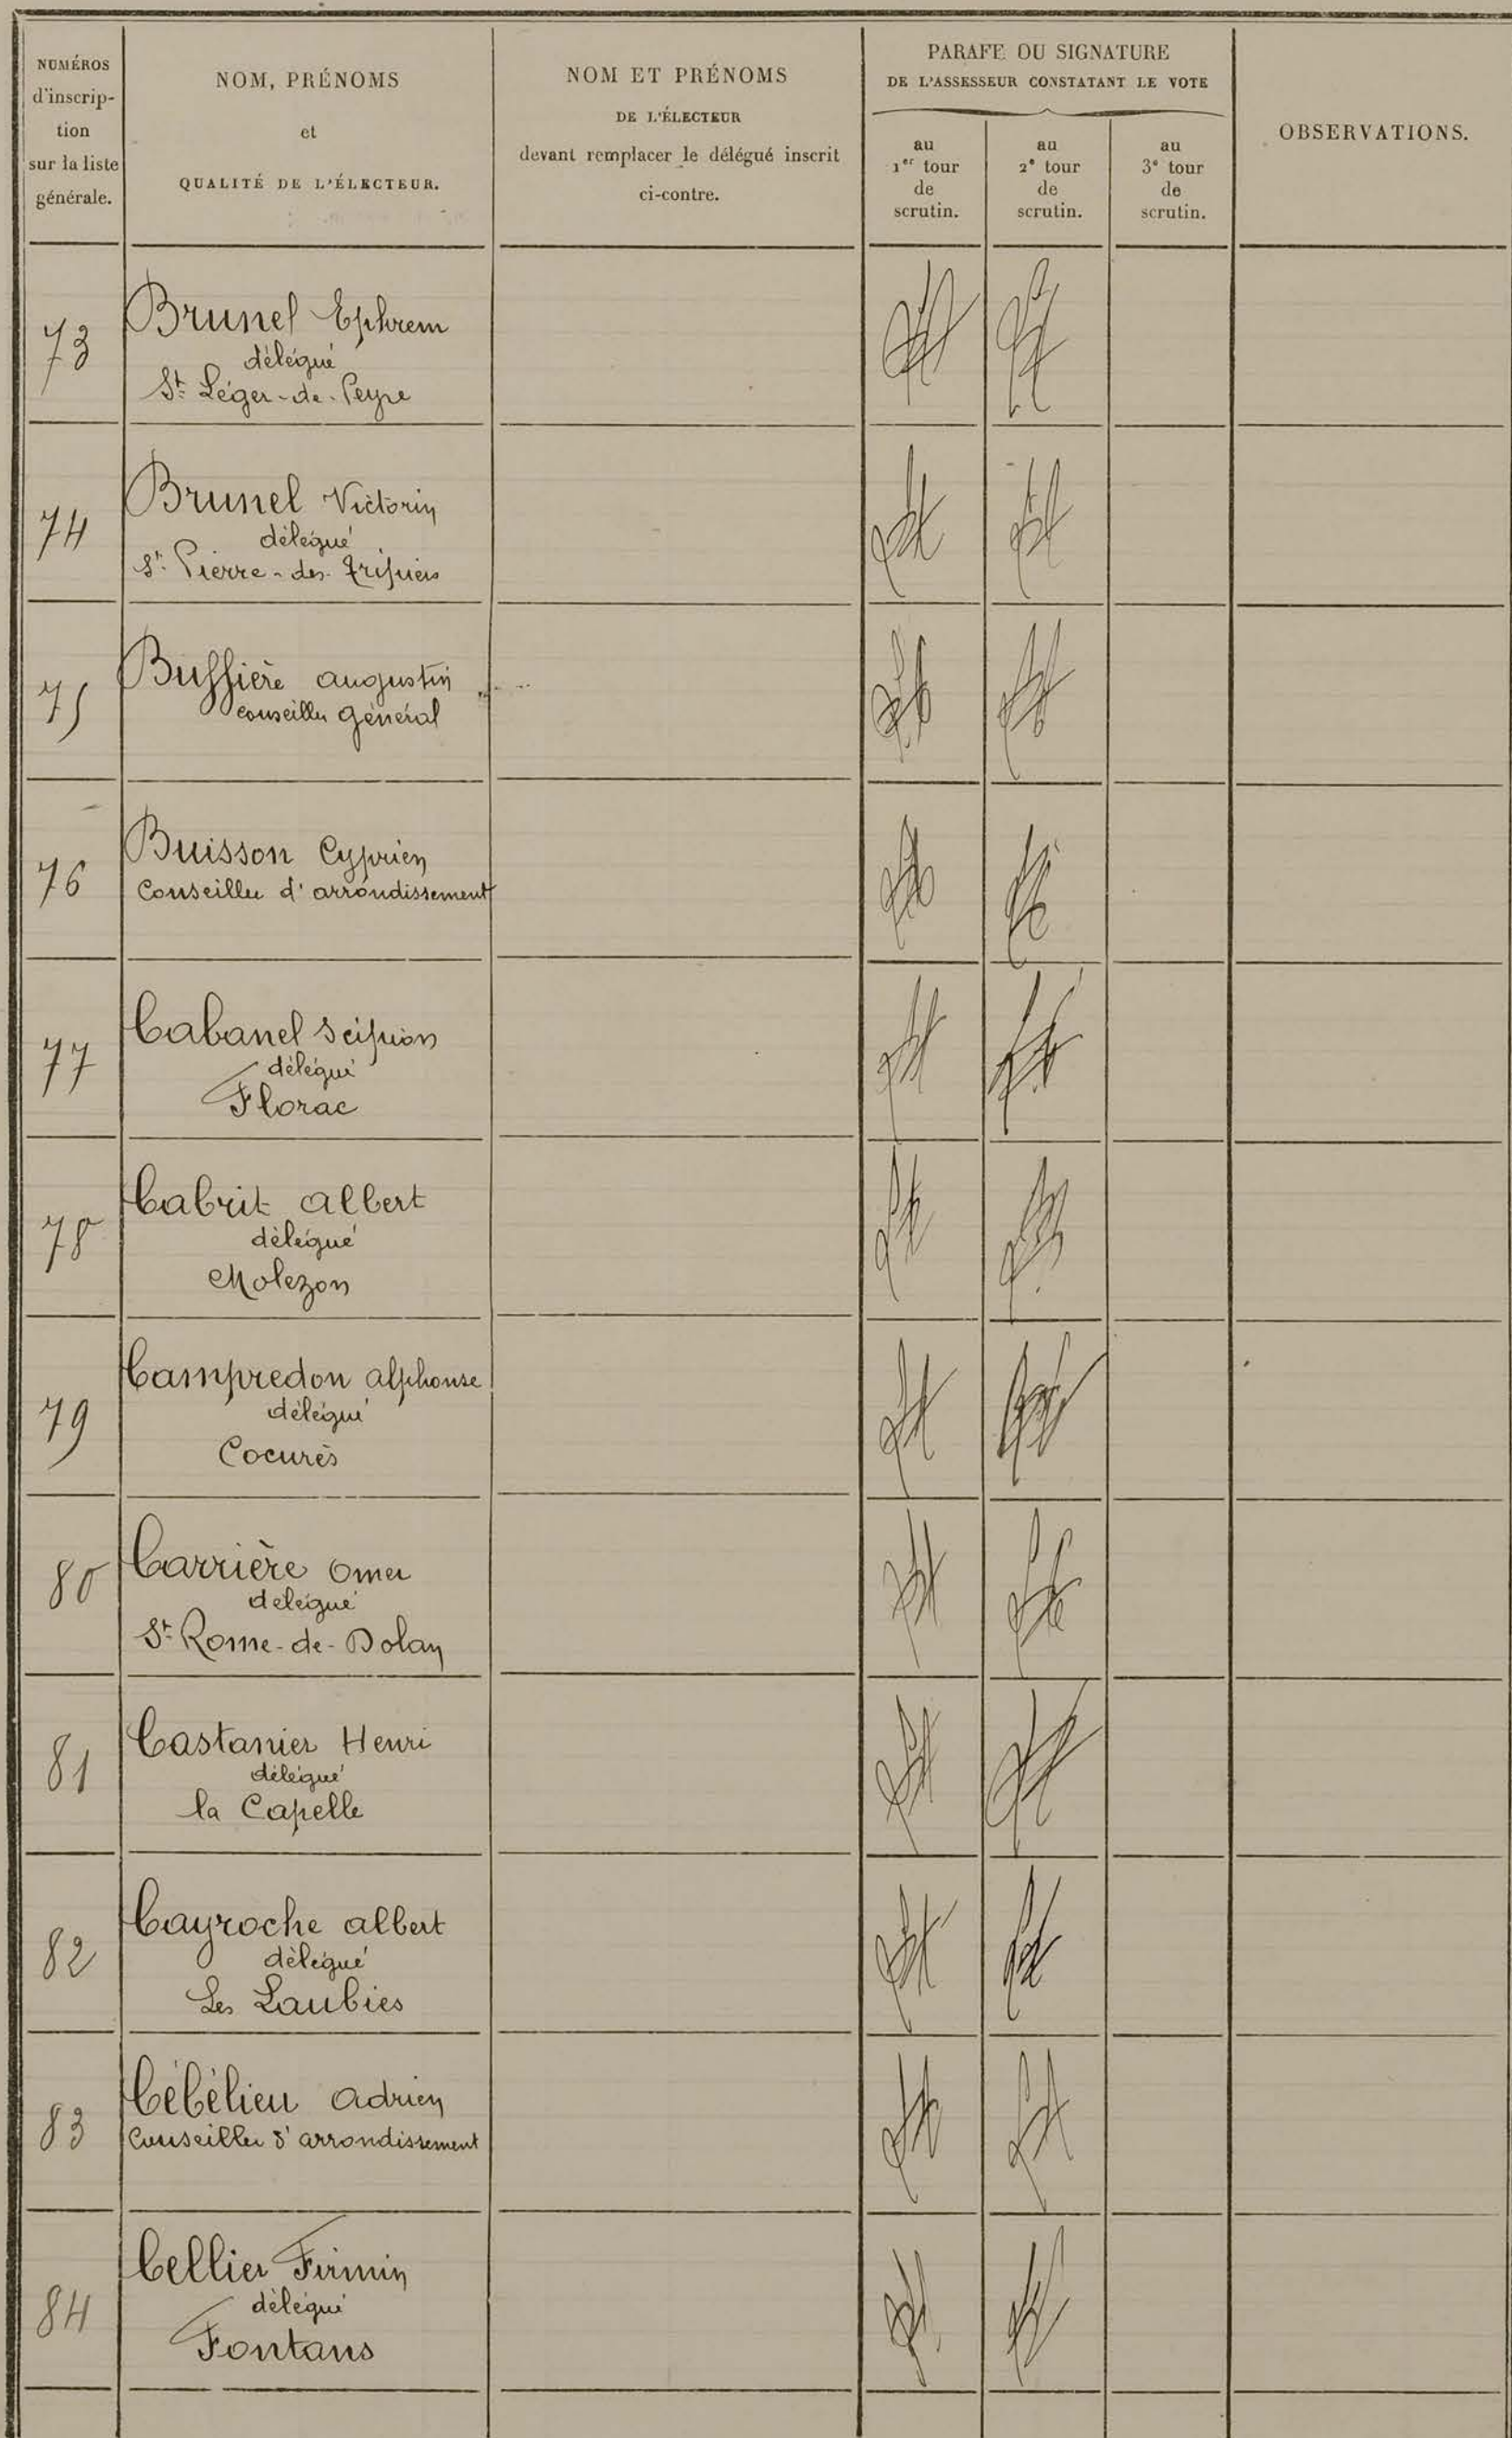 NUMÉROS
d'inscrip-
tion
sur la liste
générale.
NOM, PRÉNOMS
et
QUALITÉ DE L'ÉLECTEUR.
NOM ET PRÉNOMS
DE L'ÉLECTEUR
devant remplacer le délégué inscrit
ci-contre.
PARAFE OU SIGNATURE
DE L'ASSESSEUR CONSTATANT LE VOTE
au
1er tour
de
scrutin.
au
2e tour
de
scrutin.
au
3e tour
de
scrutin.
OBSERVATIONS.
73
Brunel Ephrem
délégué
St Léger-de-Peyre
74
Brunel Victorin
délégué
St Pierre-des-Tripiers
75
Buffière augustin
conseiller général
76
Buisson Cyprien
Conseiller d'arrondissement
77
Cabanel Scipion
délégué
Florac
78
Cabrit albert
délégué
Molezon
79
Campredon alphonse
délégué
Cocurès
80
Carrière Omer
délégué
St Rome-de-Dolan
81
Castanier Henri
délégué
la Capelle
82
Cayroche albert
délégué
Les Laubies
83
Cébélieu adrien
Conseiller d'arrondissement
84
Cellier Firmin
délégué
Fontans